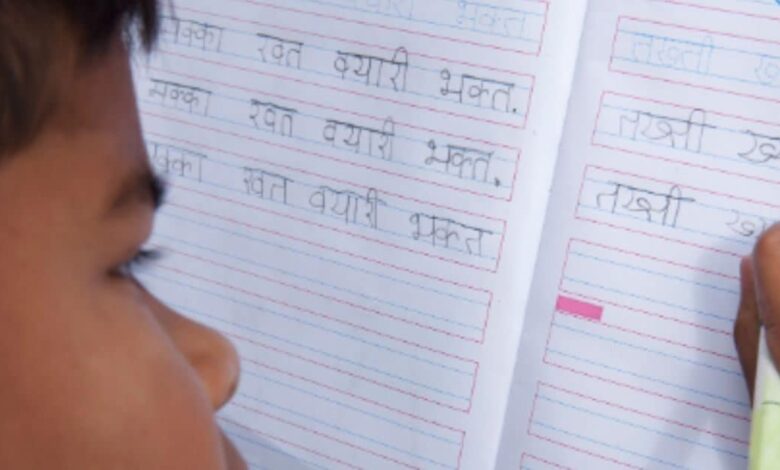 भक्त
क्का खत क्यारी भक्त.
मक्का खत क्यारी भक्त.
क्का खत क्यारी भक्त
तख्ती
तख्ती
तख्ती